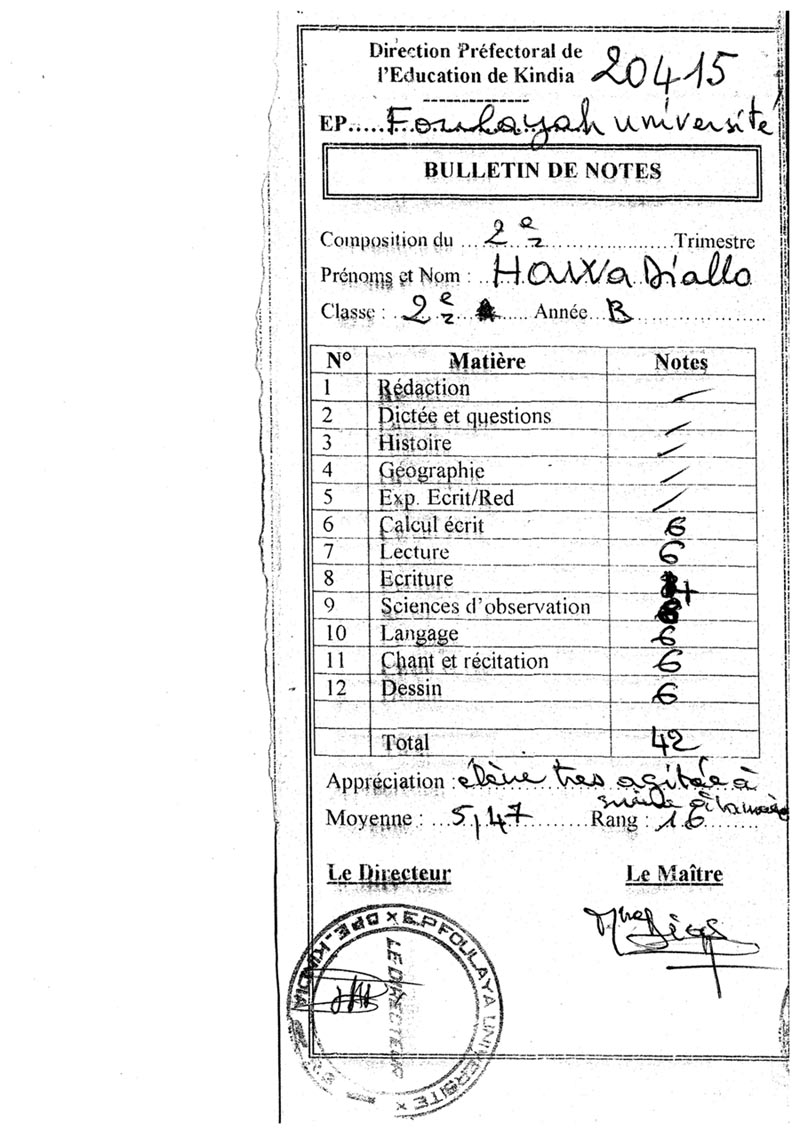 Direction Préfectoral de
l'Education de Kindia 20415
EP.....Foulayah université
BULLETIN DE NOTES
Composition du ...2e...Trimestre
Prénoms et Nom : Hawa Diallo
Classe : 2e Année B
N° Matière Notes
1 Rédaction /
2 Dictée et questions /
3 Histoire /
4 Géographie /
5 Exp. Ecrit/Red /
6 Calcul écrit 6
7 Lecture 6
8 Ecriture
9 Sciences d'observation 6
10 Langage 6
11 Chant et récitation 6
12 Dessin 6
Total 42
Appréciation : élève tres agitée à
Moyenne : 5,47 Rang : 16
Le Directeur Le Maître
DPE-KINDIA x E.P FOULAYA UNIVERSITE x
LE DIRECTEUR